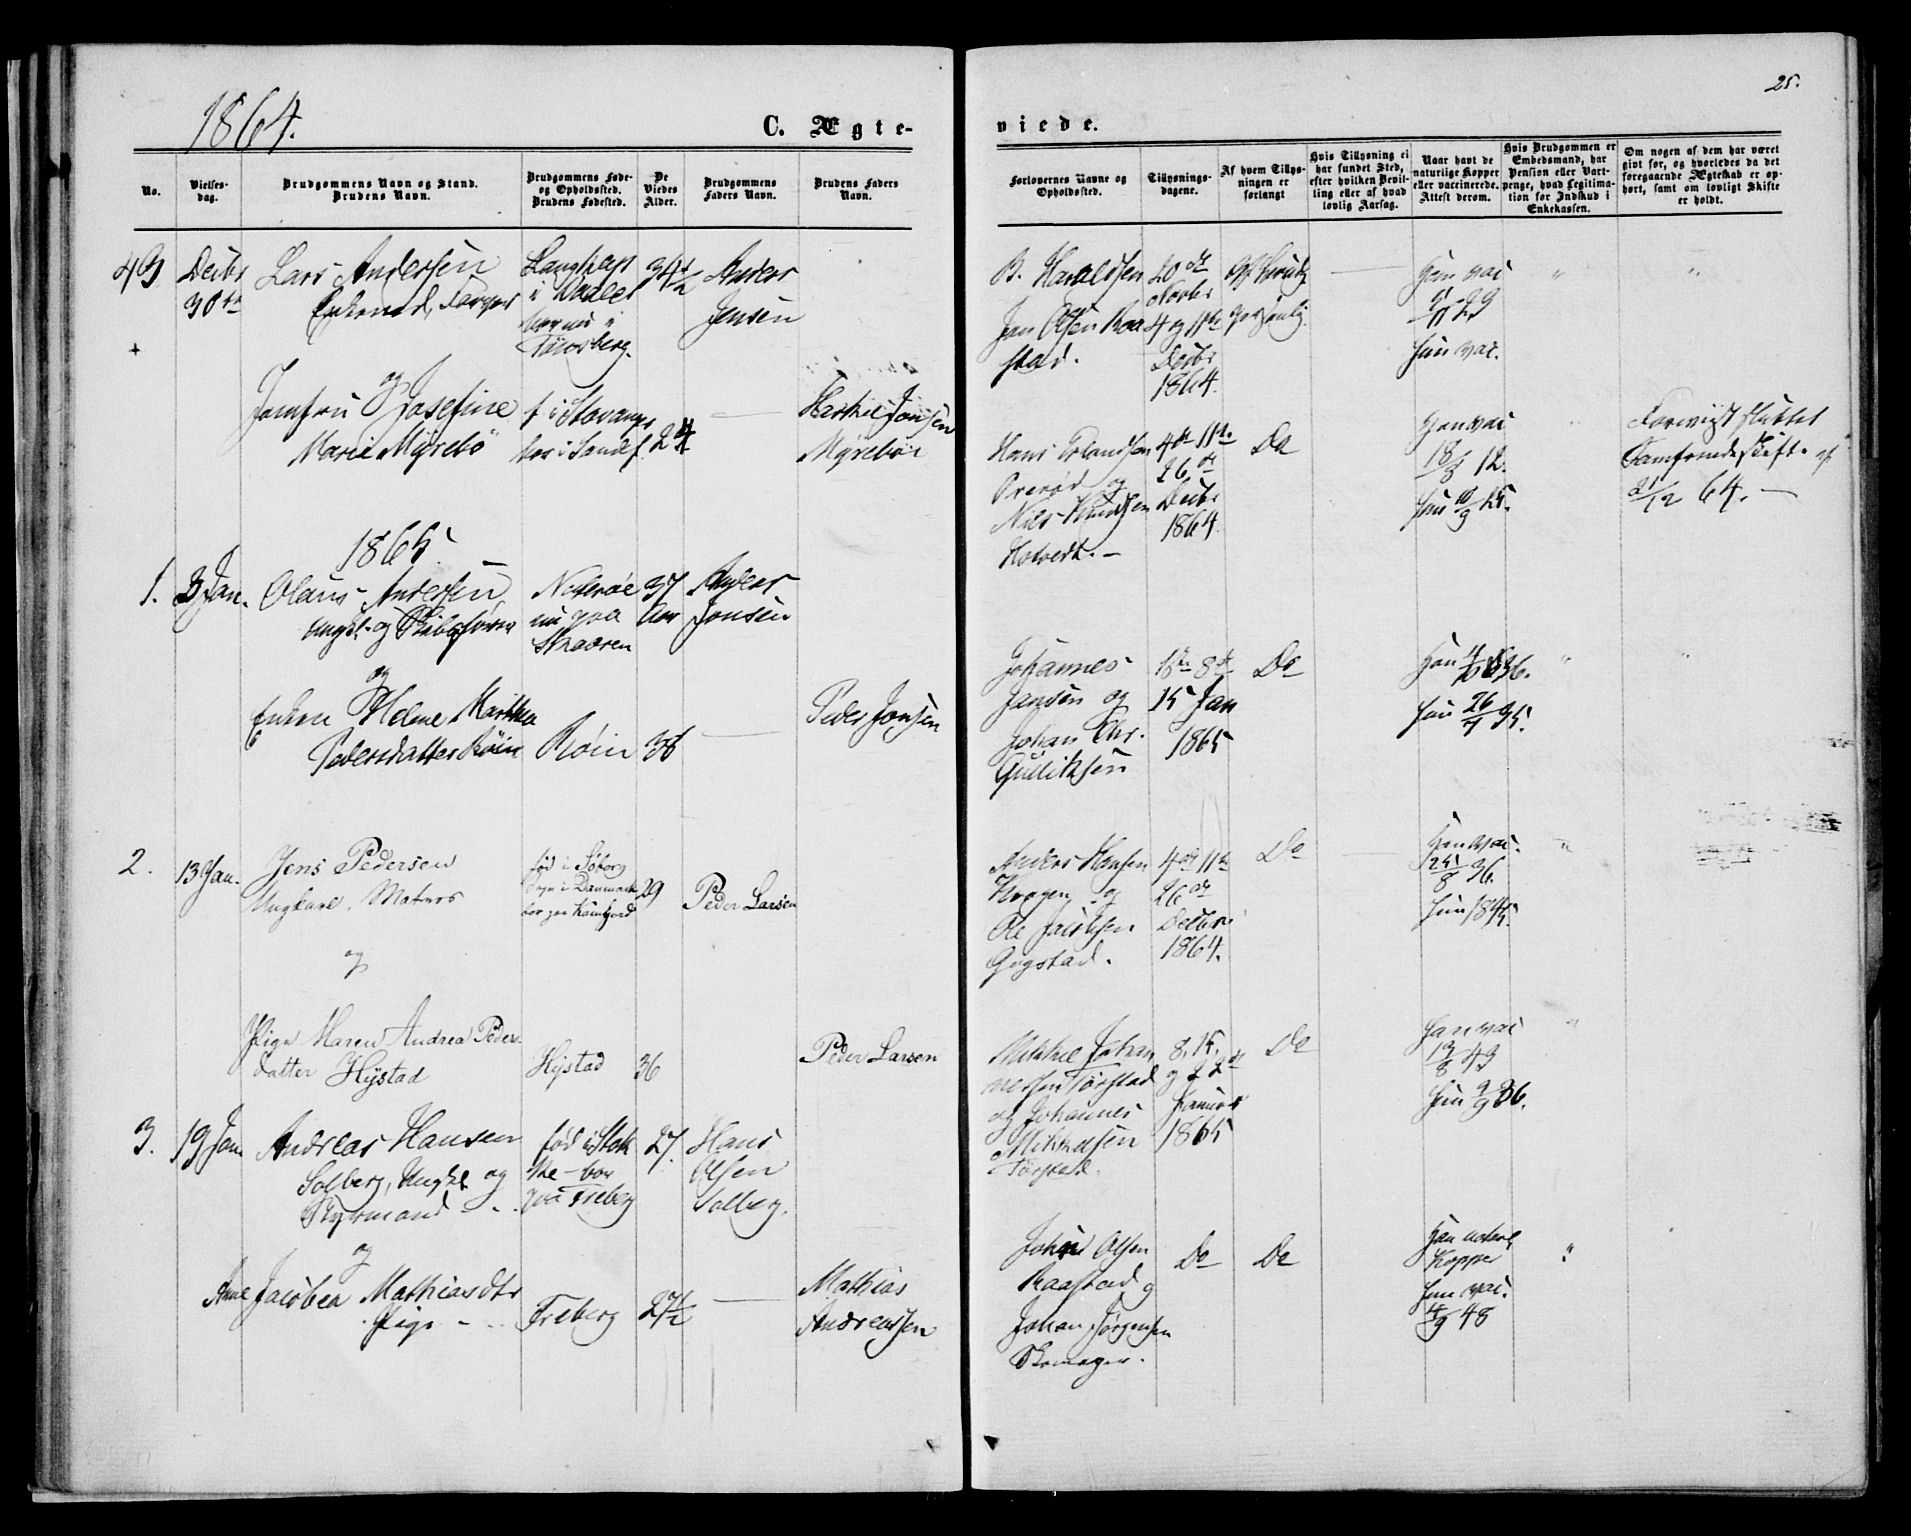 1864.
C. Ægte-
No.
Vielses-
dag.
Brudgommens Navn og Stand.
Brudens Navn.
Brudgommens Føde-
og Opholdssted.
Brudens Fødested.
De
Viedes
Alder.
Brudgommens
Faders Navn.
Brudens Faders
Navn.
49 Decbr Lars Andersen
30te Enkemand, Farver
i
bor nu i
Tønsberg.
34½ Anders
Jensen
og
Jomfru Josefine
Marie Myrebö
f. i Stavanger
bor i Sandf. 24
Myreböe
1865.
1. 3 Jan. Olaus Andersen
Ungk. og Skibsfører
Nøterøe
nu paa
37
Aar
Anders
Jonsen
og
Enken Helene Marthea
Pedersdatter Röin
Röin 36 Peder Jonsen
2. 13 Jan. Jens Pedersen
Ungkarl. Matros
fød i Söborg
Sogn i Danmark
bor paa
29 Peder Larsen
og
Pige Maren Andrea Peders
datter Hystad
Hystad 36 Peder Larsen
3. 19 Jan. Andreas Hansen
Solberg, Ungk. og
Styrmand
fød i Stok
ke - bor
paa Freberg
27. Hans
Olsen
Solberg.
og
Anne Jacobea Mathiasdtr
Pige
Freberg 27½ Mathias
Andreassen
25.
viede.
Forlovernes Navne og
Opholdssted.
Tillysnings-
dagene.
Af hvem Tillys-
ningen er
forlangt
Hvis Tillysning ei
har fundet Sted,
efter hvilken Bevil-
ling eller af hvad
lovlig Aarsag.
Naar havt de
naturlige Kopper
eller vaccinerede.
Attest derom.
Hvis Brudgommen er
Embedsmand, har
Pension eller Vart-
penge, hvad Legitima-
tion for Indskud i
Enkekassen.
Om nogen af dem har været
givt før, og hvorledes da det
foregaaende Ægteskab er op-
hørt, samt om lovligt Skifte
er holdt.
B. Haraldsen
Jan Olsen Raa
stad.
20de
Novbr
4 og 11te
Decbr
1864.
Han vac
29
Hun vac.
Hans Erlandsen
og
Nils Knudsen
Hotvedt.
4de 11te
26de
Decbr
1864
Do
Han vac
18/8 12.
Hun 10/9 25.
Forevist sluttet
Samfrændeskifte af
21/12 64.
Johannes
Jansen og
Johan Chr.
Gulliksen
1ste 8de
15 Jan
1865
Do
Han 36.
Hun 26/7 35.
Anders Hansen
og
Ole Jacobsen
Gogstad.
4de 11te
26de
Decbr.
1864.
Do
Han vac.
25/8 36.
Hun 1845.
Mikkel Johan
nessen Torstad
og Johannes
Mikkelsen
Torstad.
8, 15,
og 22de
Januar
1865
Do
Han vac
19/8 49
Hun 9/9 36.
Johan Olsen
Raastad og
Johan Jörgensen
Skomager.
Do Do
Han naturl.
Kopper
Hun vac.
4/9 48